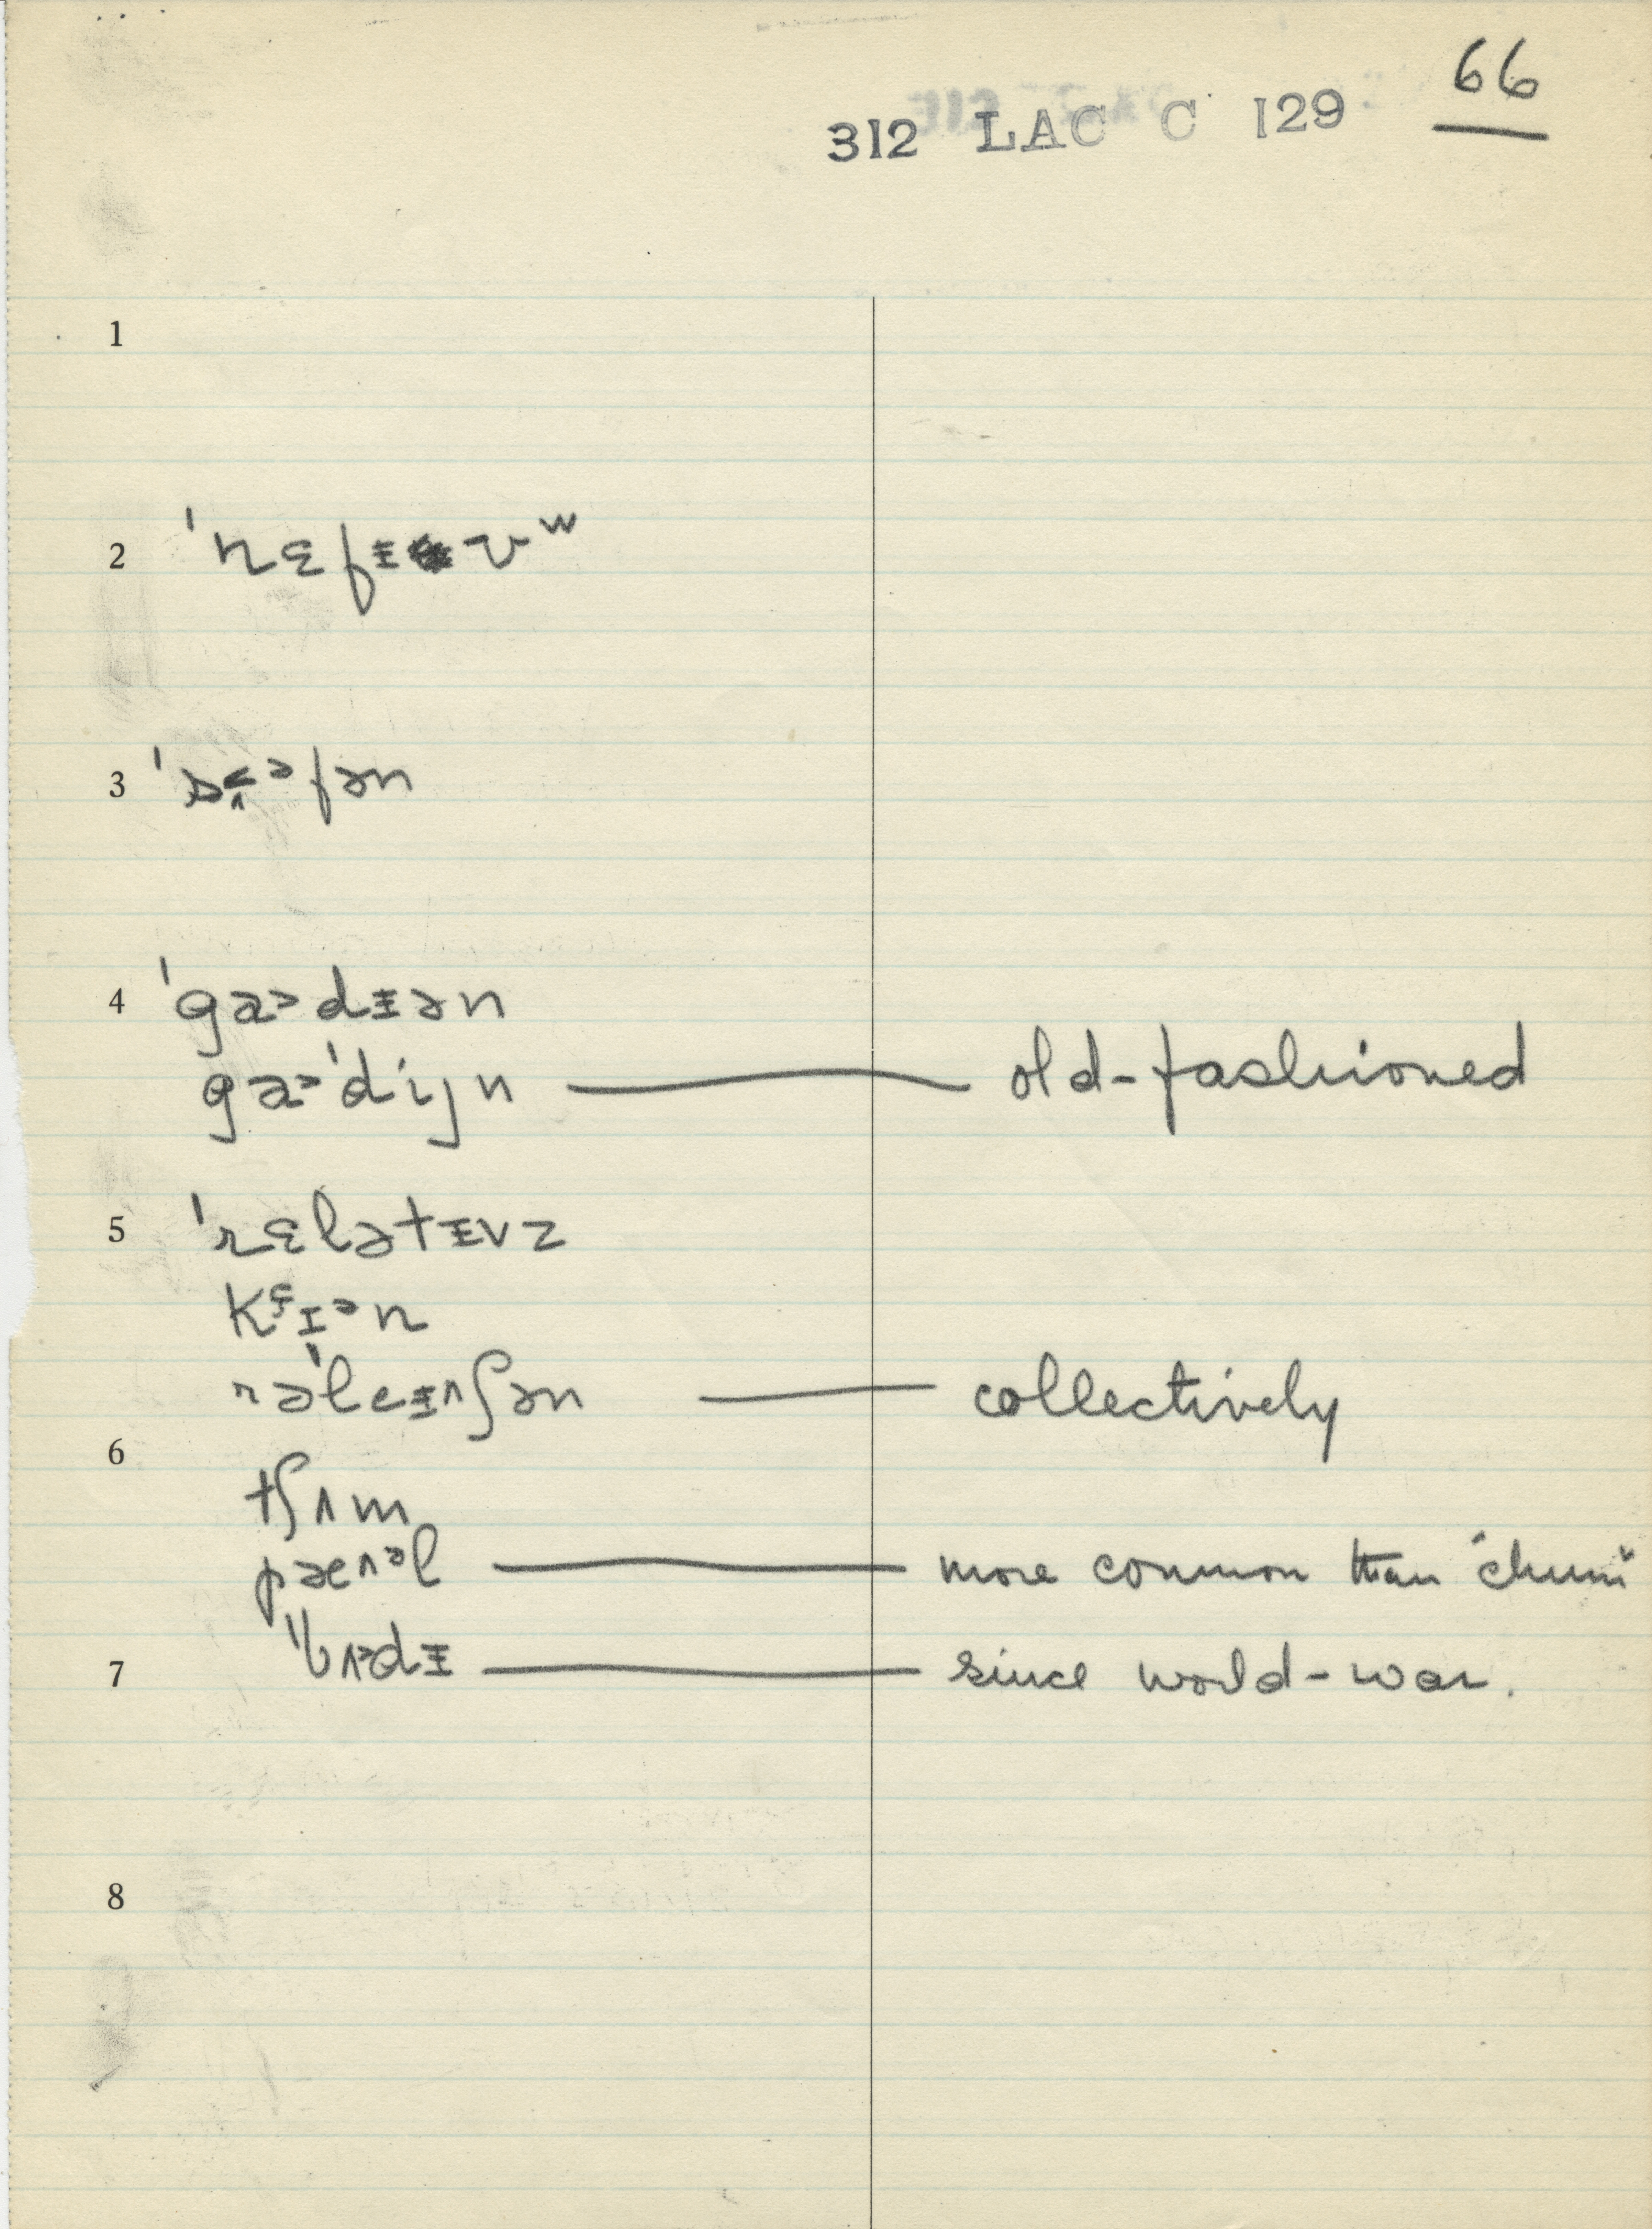 66
312 LAC C 129
1
2 ˈnɛfᵻʊʷ
3
4 ˈgaᵊdᵻən
gaᵊˈdiɪ̯n — old-fashioned
5 ˈrɛlətᵻvz
kɛɪᵊn
rəˈleᵻʌʃən — collectively
6
tʃʌm
pæᴧᵊl — more common than "chum"
7 ˈbʌᵊdᵻ — since world-war.
8